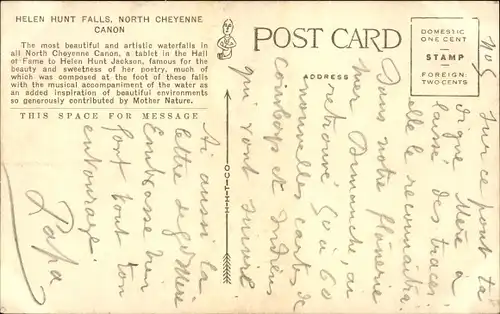 HELEN HUNT FALLS, NORTH CHEYENNE
CANON
The most beautiful and artistic waterfalls in
all North Cheyenne Canon, a tablet in the Hall
of Fame to Helen Hunt Jackson, famous for the
beauty and sweetness of her poetry, much of
which was composed at the foot of these falls
with the musical accompaniment of the water as
an added inspiration of beautiful environments
so generously contributed by Mother Nature.
THIS SPACE FOR MESSAGE
POST CARD
ADDRESS
DOMESTIC
ONE CENT
STAMP
FOREIGN
TWO CENTS
No 5
Sur ce pont ta
digne Mère a
laissé des traces:
elle le reconnaîtra.
Dans notre flânerie
hier Dimanche, ai
retrouvé 50 à 60
nouvelles cartes de
cowboys et Indiens
qui vont suivre
Ai aussi la
lettre de Mère
Embrasse bien
fort tout ton
entourage.
Papa